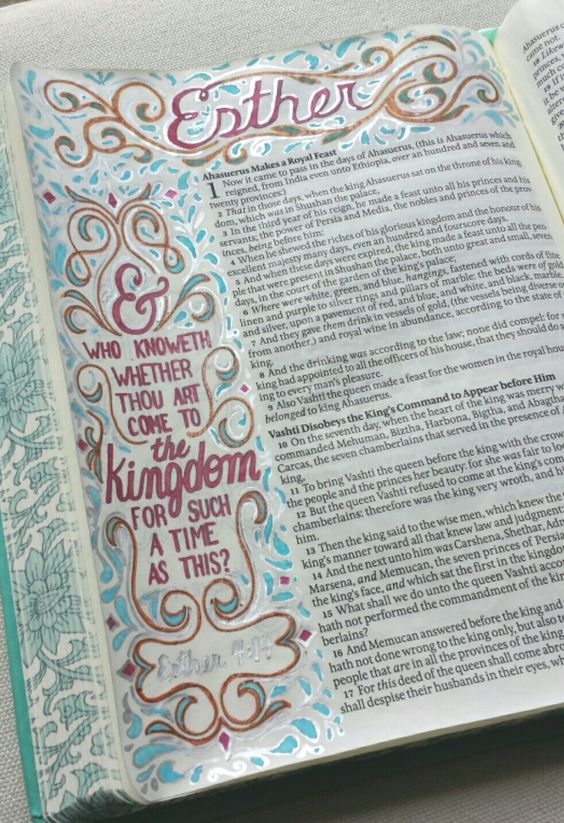 Esther
&
WHO KNOWETH
WHETHER
THOU ART
COME TO
the
kingdom
FOR SUCH
A TIME
AS THIS?
Esther 4:14
Ahasuerus Makes a Royal Feast
1 Now it came to pass in the days of Ahasuerus, (this is Ahasuerus which
reigned, from India even unto Ethiopia, over an hundred and seven and
twenty provinces)
2 That in those days, when the king Ahasuerus sat on the throne of his king
dom, which was in Shushan the palace,
3 In the third year of his reign, he made a feast unto all his princes and his
servants; the power of Persia and Media, the nobles and princes of the prov
inces, being before him:
4 When he shewed the riches of his glorious kingdom and the honour of his
excellent majesty many days, even an hundred and fourscore days.
5 And when these days were expired, the king made a feast unto all the peo
ple that were present in Shushan the palace, both unto great and small, seven
days, in the court of the garden of the king's palace;
6 Where were white, green, and blue, hangings, fastened with cords of fine
linen and purple to silver rings and pillars of marble: the beds were of gold
and silver, upon a pavement of red, and blue, and white, and black, marble.
7 And they gave them drink in vessels of gold, (the vessels being diverse o
from another,) and royal wine in abundance, according to the state of
king.
8 And the drinking was according to the law; none did compel: for s
king had appointed to all the officers of his house, that they should do a
ing to every man's pleasure.
9 Also Vashti the queen made a feast for the women in the royal hou
belonged to king Ahasuerus.
Vashti Disobeys the King's Command to Appear before Him
10 On the seventh day, when the heart of the king was merry w
commanded Mehuman, Biztha, Harbona, Bigtha, and Abagtha
Carcas, the seven chamberlains that served in the presence of A
king,
11 To bring Vashti the queen before the king with the crow
the people and the princes her beauty: for she was fair to lo
12 But the queen Vashti refused to come at the king's com
chamberlains: therefore was the king very wroth, and hi
him.
13 Then the king said to the wise men, which knew the
king's manner toward all that knew law and judgment
14 And the next unto him was Carshena, Shethar, Adn
Marsena, and Memucan, the seven princes of Persia
the king's face, and which sat the first in the kingdo
15 What shall we do unto the queen Vashti accor
hath not performed the commandment of the kin
berlains?
16 And Memucan answered before the king and
hath not done wrong to the king only, but also t
people that are in all the provinces of the king
17 For this deed of the queen shall come abro
shall despise their husbands in their eyes, wh
Ahasuerus c
came not.
18 Likew
princes,
much co
19 If i